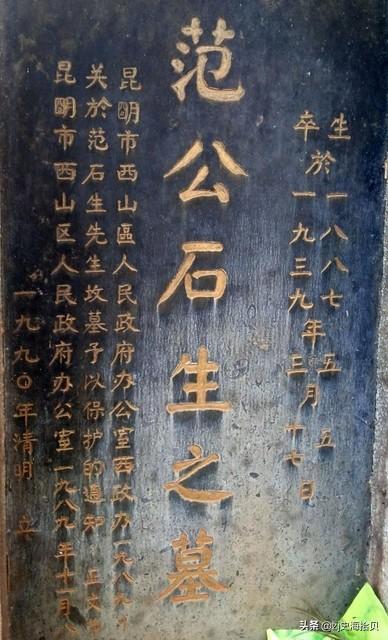 生於一八八七年五月五日
卒於一九三九年三月十七日
范公石生之墓
昆明市西山區人民政府办公室西政办
关於范石生先生坟墓予以保护的通知 正文
昆明市西山区人民政府办公室一九八九年十一月
一九九〇年清明 立
头条 @zj史海拾贝